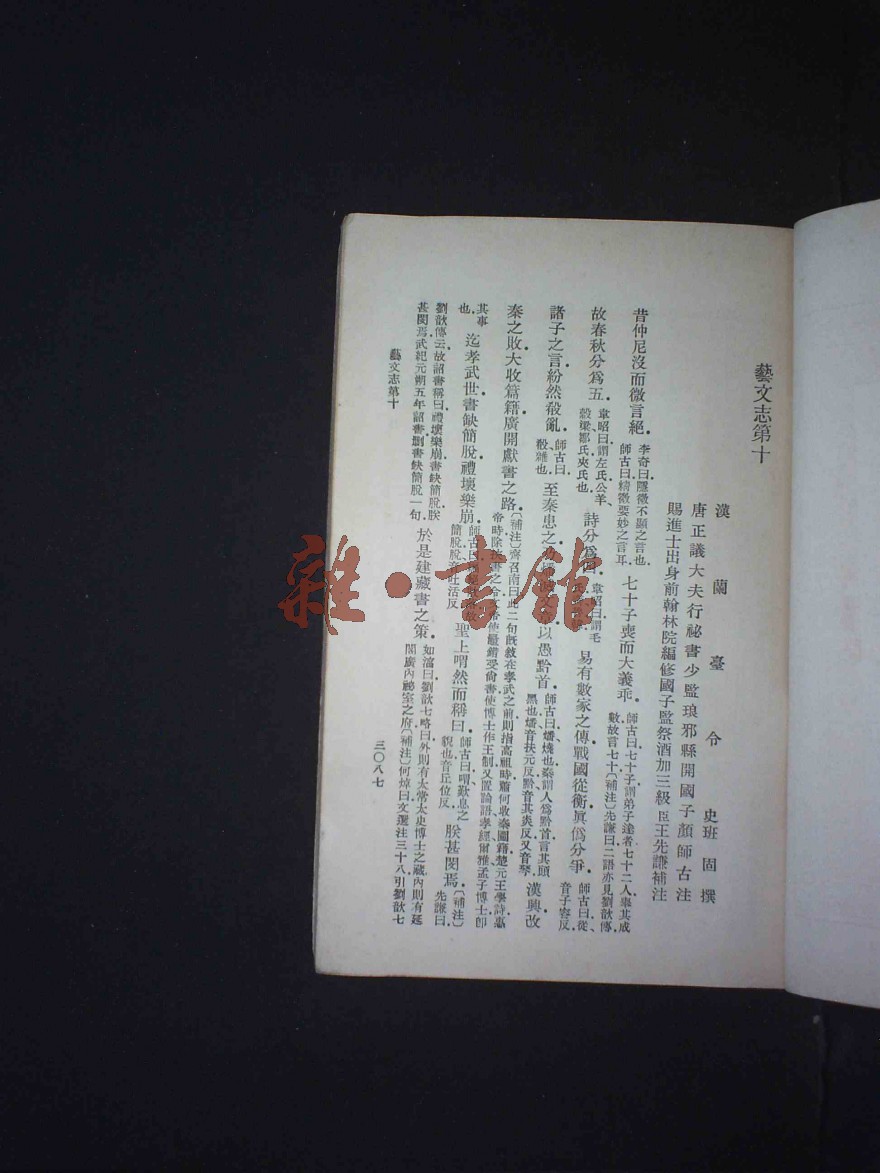 藝文志第十
漢蘭臺令史班固撰
唐正議大夫行祕書少監琅邪縣開國子顏師古注
賜進士出身前翰林院編修國子監祭酒加三級臣王先謙補注
昔仲尼沒而微言絕。李奇曰、隱微不顯之言也、師古曰、精微要妙之言耳。七十子喪而大義乖。師古曰、七十子、謂弟子達者七十二人、舉其成數、故言七十、〔補注〕先謙曰、二語亦見劉歆傳。
故春秋分爲五。韋昭曰、謂左氏、公羊、穀梁、鄒氏、夾氏也。詩分爲四。韋昭曰、謂毛氏易有數家之傳戰國從衡眞僞分爭。師古曰、從音子容反。
諸子之言紛然殽亂。師古曰、殽、雜也。至秦患之以愚黔首。師古曰、燔、燒也、秦謂人爲黔首、言其頭黑也、燔音扶元反、黔音其炎反、又音琴。漢興改
秦之敗大收篇籍廣開獻書之路。〔補注〕齊召南曰、此二句旣敘在孝武之前、則指高祖時蕭何收秦圖籍、楚元王學詩、惠帝時除挾書之令、文帝使鼂錯受尙書、使博士作王制、又置論語孝經爾雅孟子博士、卽
其事也。迄孝武世書缺簡脫禮壞樂崩。師古曰簡脫、脫音吐活反。聖上喟然而稱曰。師古曰、喟、歎息之貌也、音丘位反。朕甚閔焉。〔補注〕先謙曰、
劉歆傳云、故詔書稱曰、禮壞樂崩、書缺簡脫、朕甚閔焉、武紀元朔五年詔書、刪書缺簡脫一句。於是建藏書之策。如淳曰、劉歆七略曰、外則有太常太史博士之藏、內則有延閣廣內祕室之府、〔補注〕何焯曰、文選注三十八引劉歆七
藝文志第十
三〇八七
雜·書館